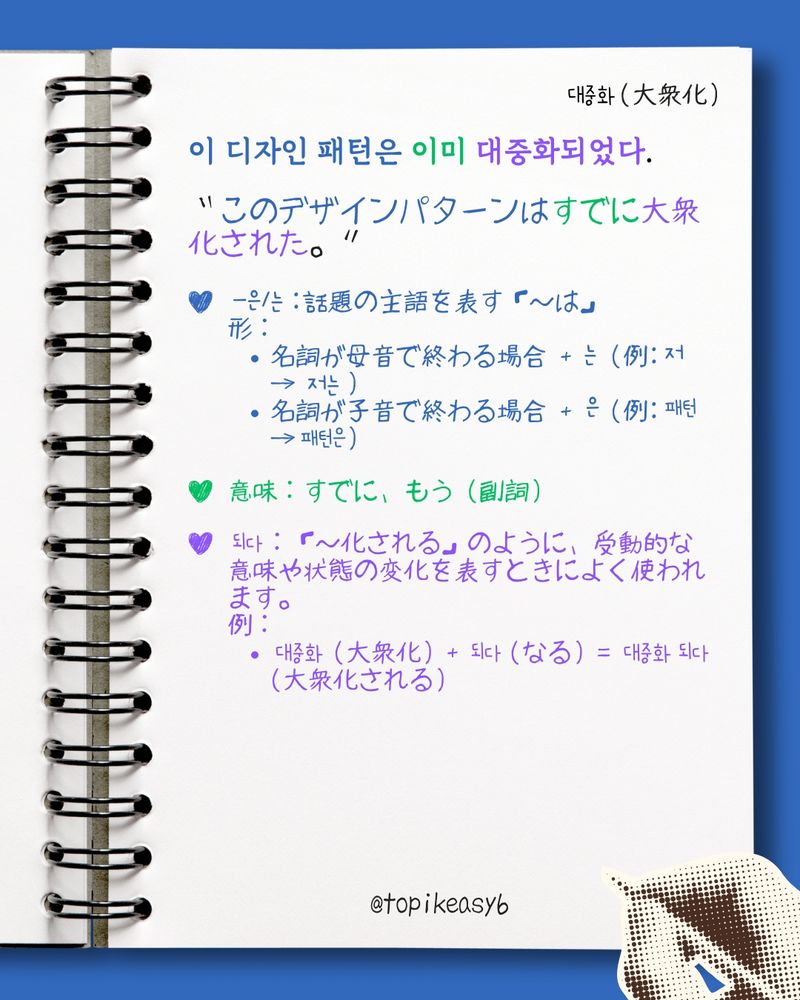 대중화(大衆化)
이 디자인 패턴은 이미 대중화되었다.
"このデザインパターンはすでに大衆
化された。"
-은/는:話題の主語を表す『〜は』
形:
• 名詞が母音で終わる場合 + 는 (例: 저
→ 저는 )
• 名詞が子音で終わる場合 + 은 (例: 패턴
→ 패턴은)
意味:すでに、もう(副詞)
되다:『〜化される』のように、受動的な
意味や状態の変化を表すときによく使われ
ます。
例:
• 대중화(大衆化)+ 되다(なる)= 대중화 되다
(大衆化される)
@topikeasy6